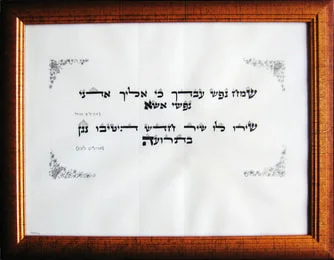 שמח נפש עבדך כי אליך אדני
נפשי אשא
שירו לו שיר חדש היטיבו נגן
בתרועה